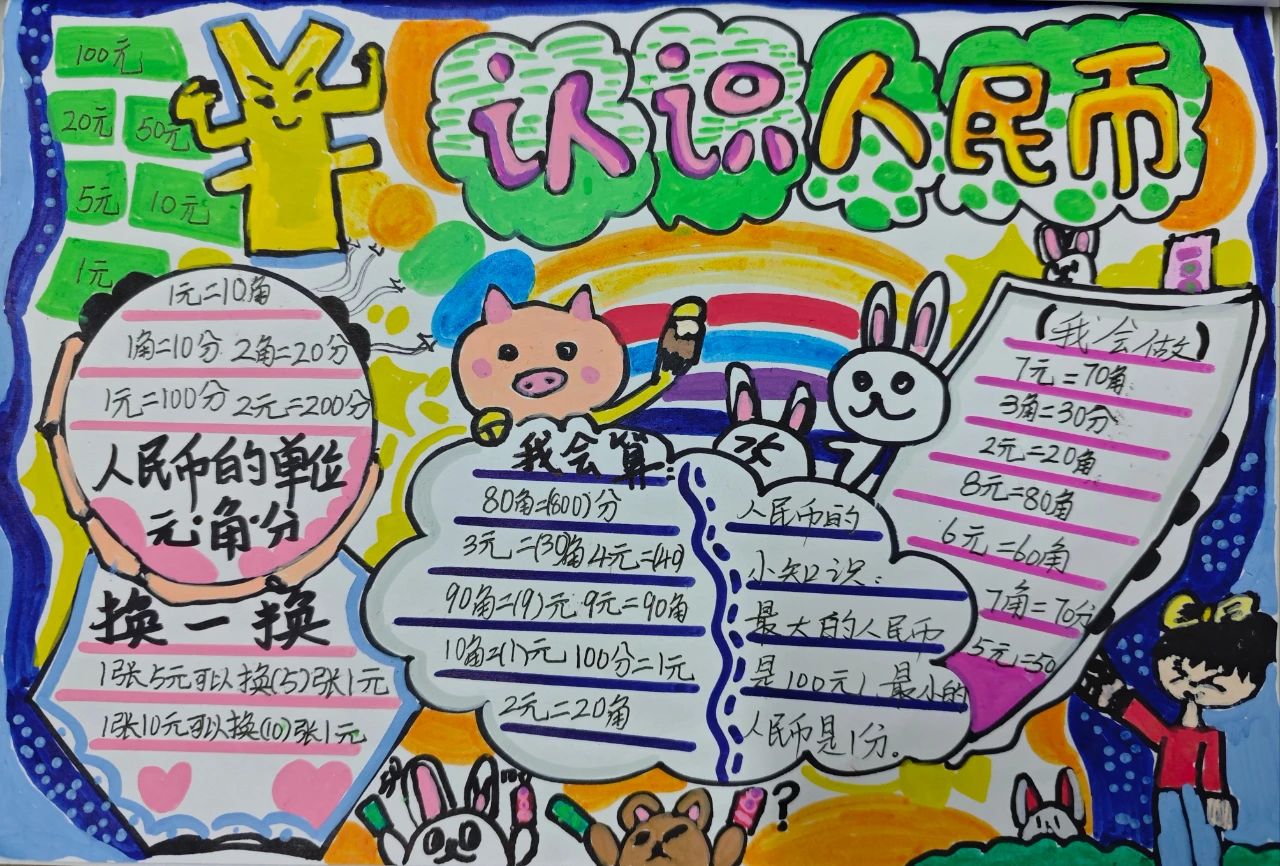 认识人民币
100元
20元 50元
5元 10元
1元
1元=10角
1角=10分 2角=20分
1元=100分 2元=200分
人民币的单位
元·角·分
换一换
1张5元可以换(5)张1元
1张10元可以换(10)张1元
我会算:
80角=(800)分
3元=(30)角 4元=(40)
90角=(9)元 9元=90角
10角=(1)元 100分=1元
2元=20角
人民币的
小知识:
最大的人民币
是100元,最小的
人民币是1分。
(我会做)
7元=70角
3角=30分
2元=20角
8元=80角
6元=60角
7角=70分
5元=50
?